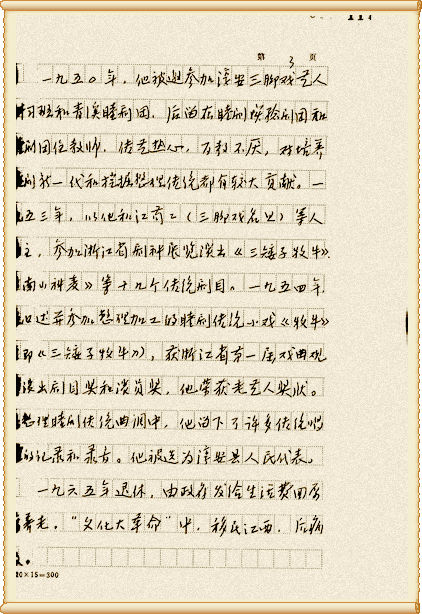 第 3 页
一九五〇年，他被邀参加淳安三脚戏艺人
习班和青溪睦剧团，后曾在睦剧实验剧团和
剧团任教师，传艺热心，百教不厌，对培养
剧新一代和挖掘整理传统都有较大贡献。一
九五三年，以他和江商（三脚戏名旦）等人
主，参加浙江省剧种展览演出《三矮子牧牛》
《南山种麦》等十九个传统剧目。一九五四年
口述并参加整理加工的睦剧传统小戏《牧牛》
即《三矮子牧牛》），获浙江省第一届戏曲观
演出剧目奖和演员奖，他荣获老艺人奖状。
整理睦剧传统曲调中，他留下了许多传统唱
的记录和录音。他被选为淳安县人民代表。
一九六五年退休，由政府发给生活费回原
养老。“文化大革命”中，移民江西，后病
20×15=300